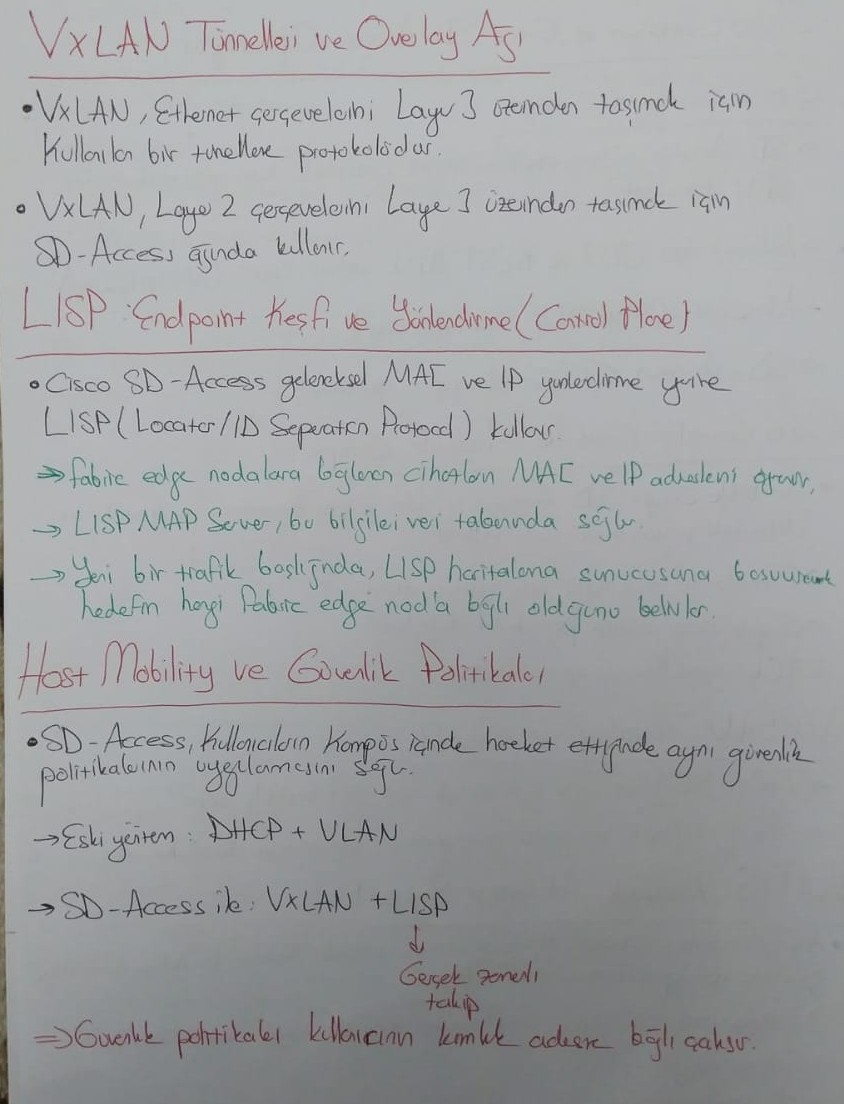 VxLAN Tünnelleri ve Overlay Ağı
• VxLAN, Ethernet çerçevelerini Layer 3 üzerinden taşımak için
Kullanılan bir tünelleme protokolüdür.
• VxLAN, Layer 2 çerçevelerini Layer 3 üzerinden taşımak için
SD-Access ağında kullanır.
LISP: Endpoint Keşfi ve Yönlendirme (Control Plane)
• Cisco SD-Access geleneksel MAC ve IP yönlendirme yerine
LISP (Locator/ID Separation Protocol) kullanır.
⇒ fabric edge nodalara bağlanan cihazların MAC ve IP adreslerini öğrenir,
→ LISP MAP Server, bu bilgileri veri tabanında sağlar.
→ Yeni bir trafik başlığında, LISP haritalama sunucusuna başvurarak
hedefin hangi fabric edge nod'a bağlı olduğunu belirler.
Host Mobility ve Güvenlik Politikaları
• SD-Access, kullanıcıların kampüs içinde hareket ettiğinde aynı güvenlik
politikalarının uygulamasını sağlar.
→ Eski yöntem: DHCP + VLAN
→ SD-Access ile: VXLAN + LISP
↓
Gerçek zamanlı
takip
⇒ Güvenlik politikaları kullanıcının kimlik adresine bağlı çalışır.